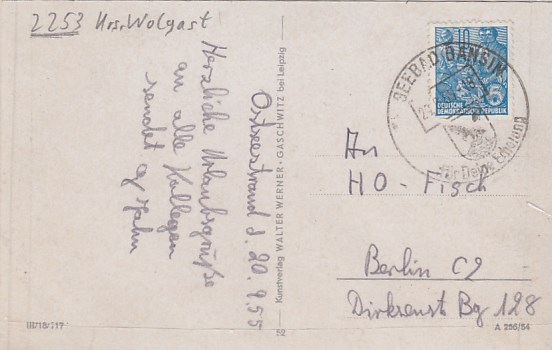 2253 Krs. Wolgast
Herzliche Urlaubsgrüße
an alle Kollegen
sendet
Ostseestrand d. 20.9.55
Kunstverlag WALTER WERNER · GASCHWITZ bei Leipzig
SEEBAD BANSIN
für Deine Erholung
10
5
DEUTSCHE
DEMOKRATISCHE REPUBLIK
An
HO-Fisch
Berlin C2
Dirksenst Bg 128
III/18/117
52
A 296/54